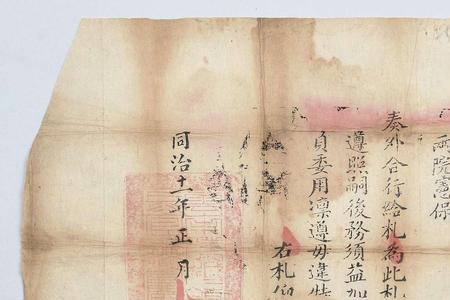 兩院憲保
奏外合行給札為此札
遵照嗣後務須益加
員委用凛遵毋違特
右札仰
同治十一年正月